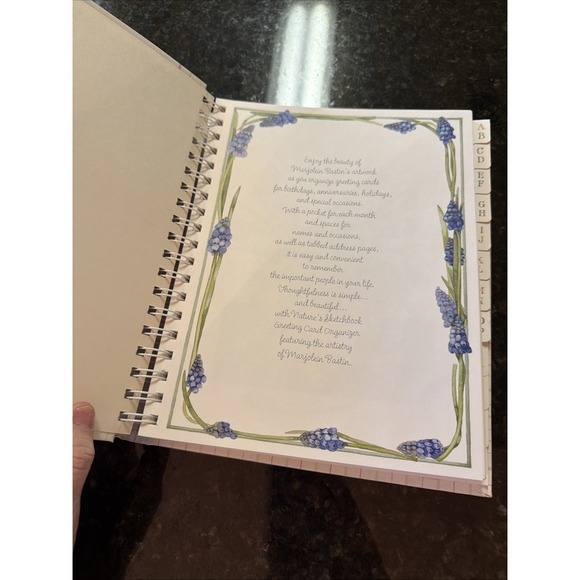 Enjoy the beauty of
Marjolein Bastin's artwork
as you organize greeting cards
for birthdays, anniversaries, holidays,
and special occasions.
With a pocket for each month
and spaces for
names and occasions,
as well as tabbed address pages,
it is easy and convenient
to remember
the important people in your life.
Thoughtfulness is simple...
and beautiful...
with Nature's Sketchbook
Greeting Card Organizer
featuring the artistry
of Marjolein Bastin.
A
B
C
D
E
F
G
H
I
J
K
L
M
N
O
P